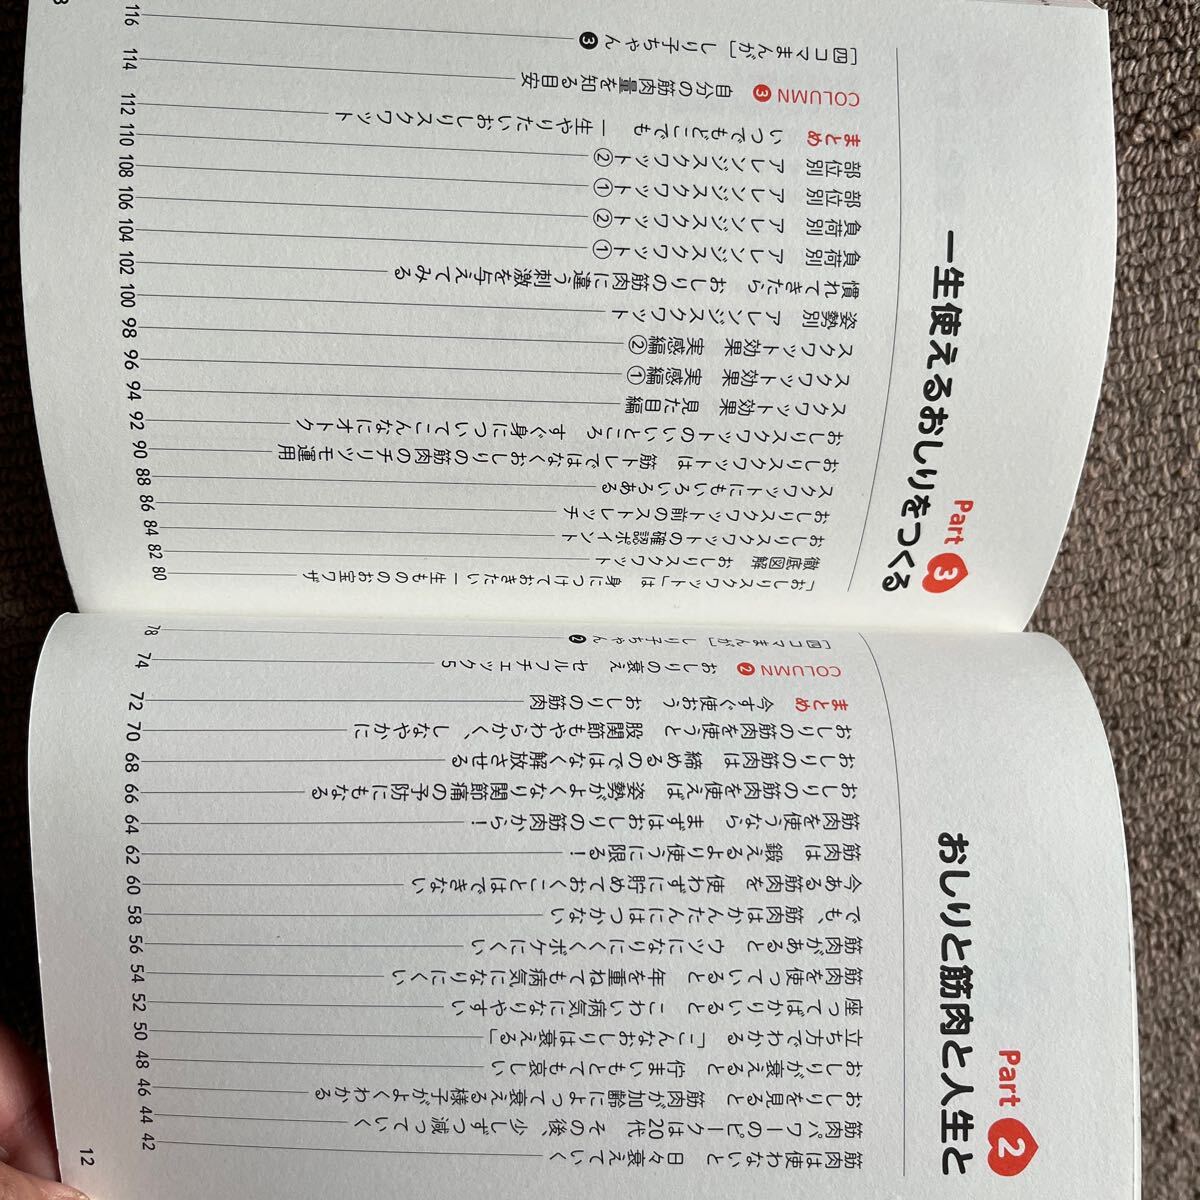 Part 2
おしりと筋肉と人生と
筋肉は使わないと 日々衰えていく 42
筋肉パワーのピークは20代 その後、少しずつ減っていく 44
おしりを見ると 筋肉が加齢によって衰える様子がよくわかる 46
おしりが衰えると 佇まいもとても哀しい 48
立ち方でわかる 「こんなおしりは衰える」 50
座ってばかりいると こわい病気になりやすい 52
筋肉を使っていると 年を重ねても病気になりにくい 54
筋肉があると ウツになりにくくボケにくい 56
でも、筋肉はかんたんにはつかない 58
今ある筋肉を 使わずに貯めておくことはできない 60
筋肉は 鍛えるより使うに限る! 62
筋肉を使うなら まずはおしりの筋肉から! 64
おしりの筋肉を使えば 姿勢がよくなり関節の痛の予防にもなる 66
おしりの筋肉は 締めるのではなく解放させる 68
おしりの筋肉を使うと 股関節もやわらかく、しなやかに 70
まとめ 今すぐ使おう おしりの筋肉 72
COLUMN 2 おしりの衰え セルフチェック5 74
[四コマまんが] しり子ちゃん 2 78
12
Part 3
一生使えるおしりをつくる
「おしりスクワット」は 身につけておきたい一生もののお宝ワザ 80
徹底図解 おしりスクワット 82
おしりスクワットの確認ポイント 84
おしりスクワット前のストレッチ 86
スクワットにもいろいろある 88
おしりスクワットは 筋トレではなくおしりの筋肉のチリツモ運用 90
おしりスクワットのいいところ すぐ身についてこんなにオトク 92
スクワット効果 見た目編 94
スクワット効果 実感編① 96
スクワット効果 実感編② 98
姿勢別 アレンジスクワット 100
慣れてきたら おしりの筋肉に違う刺激を与えてみる 102
負荷別 アレンジスクワット① 104
負荷別 アレンジスクワット② 106
部位別 アレンジスクワット① 108
部位別 アレンジスクワット② 110
まとめ いつでもどこでも 一生やりたいおしりスクワット 112
COLUMN 3 自分の筋肉量を知る目安 114
[四コマまんが] しり子ちゃん 3 116